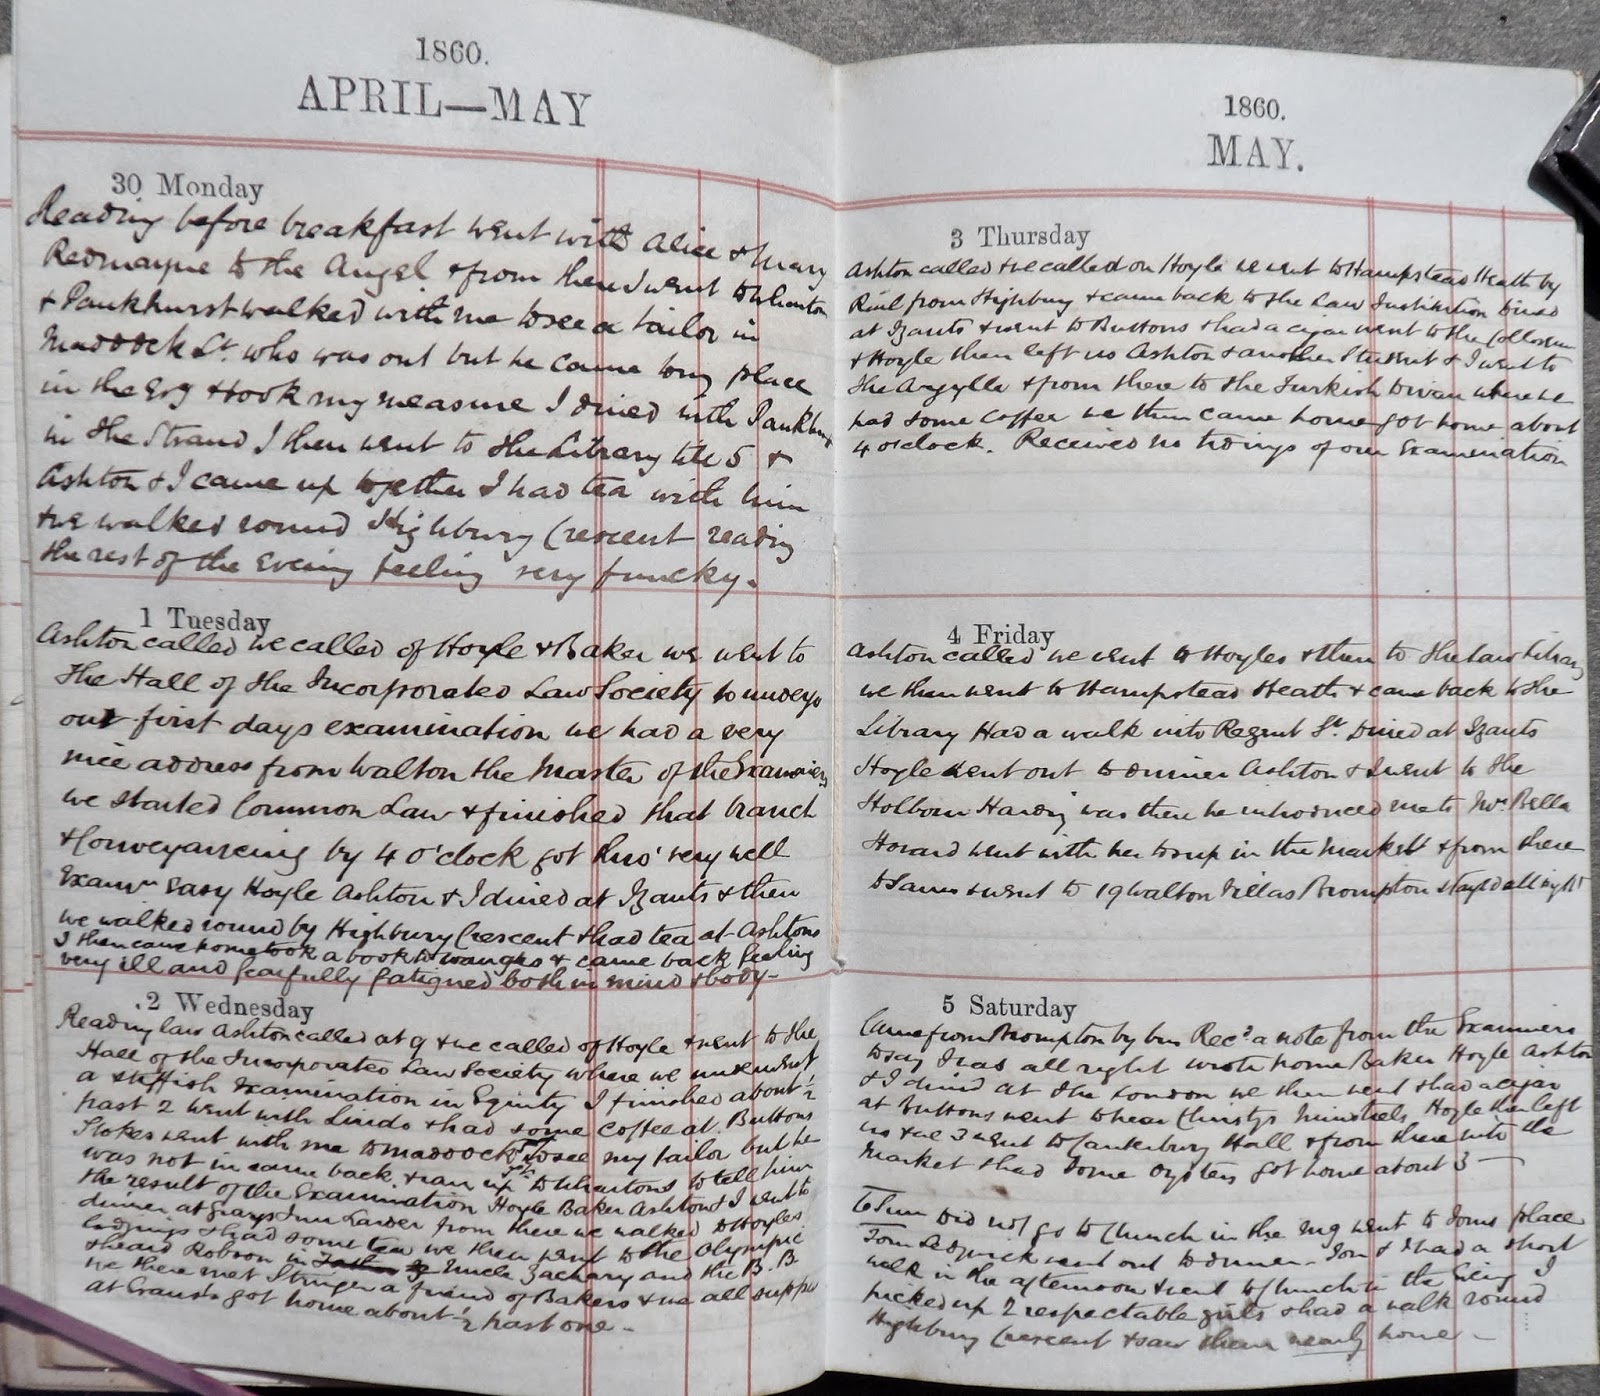 1860.
APRIL—MAY
30 Monday
Reading before breakfast went with Alice & Mary
Redmayne to the Angel & from then I went to Wharton
& Pankhurst walked with me to see a tailor in
Maddock St. who was out but he came to my place
in the Evg & took my measure I dined with Pankhurst
in the Strand I then went to the Library till 5 &
Ashton & I came up together & I had tea with him
& we walked round Highbury Crescent reading
the rest of the Evening feeling very funcky.
1 Tuesday
Ashton called we called of Hoyle & Baker we went to
the Hall of the Incorporated Law Society to undergo
our first days examination we had a very
nice address from Walton the Master of the Examiners
we started Common Law & finished that branch
& Conveyancing by 4 o'clock got thro' very well
Examn Easy Hoyle Ashton & I dined at Izants & then
we walked round by Highbury Crescent & had tea at Ashtons
I then came home took a book to & came back feeling
very ill and fearfully fatigued both in mind & body-
2 Wednesday
Reading law Ashton called at 9 & we called of Hoyle & went to the
Hall of the Incorporated Law Society where we underwent
a stiffish Examination in Equity I finished about ½
past 2 went with Lindo & had some coffee at Buttons
Stokes went with me to Maddock St to see my tailor but he
was not in came back & ran up to Whartons to tell him
the result of the Examination Hoyle Baker Ashton & I went to
dinner at Grays Inn Larder from there we walked to Hoyles
lodgings & had some tea we then went to the Olympic
& heard Robson in Uncle Zachary and the B. B
we there met Stringer a friend of Bakers & we all supped
at got home about ½ past one -
1860.
MAY.
3 Thursday
Ashton called & we called on Hoyle we went to Hampstead Heath by
Rail from Highbury & came back to the Law Institution Dined
at Izants & went to Buttons & had a cigar went to the Collosseum
& Hoyle then left us Ashton & another Student & I went to
the Argylle & from there to the Turkish Divan where we
had some Coffee we then came home got home about
4 o'clock. Received no tidings of our Examination
4 Friday
Ashton called we went to Hoyles & then to the Law Library
we then went to Hampstead Heath & came back to the
Library Had a walk into Regent St. Dined at Izants
Hoyle went out to dinner Ashton & I went to the
Holborn Harding was there he introduced me to Mrs Bella
Howard went with her to sup in the Market & from there
to & went to 19 Walton Villas Brompton stayed all night
5 Saturday
Came from Brompton by bus Recd a note from the Examiners
to say I was all right wrote home Baker Hoyle Ashton
& I dined at the London we then went & had a cigar
at Buttons went to hear Christys Minstrels Hoyle then left
us & we 3 went to Canterbury Hall & from there into the
Market & had some Oysters got home about 3 —
6 Sun Did not go to Church in the mg went to Toms place
Tom Sedgwick went out to dinner - Tom & I had a short
walk in the afternoon & went to Church in the Evening I
picked up 2 respectable girls & had a walk round
Highbury Crescent & saw them nearly home -